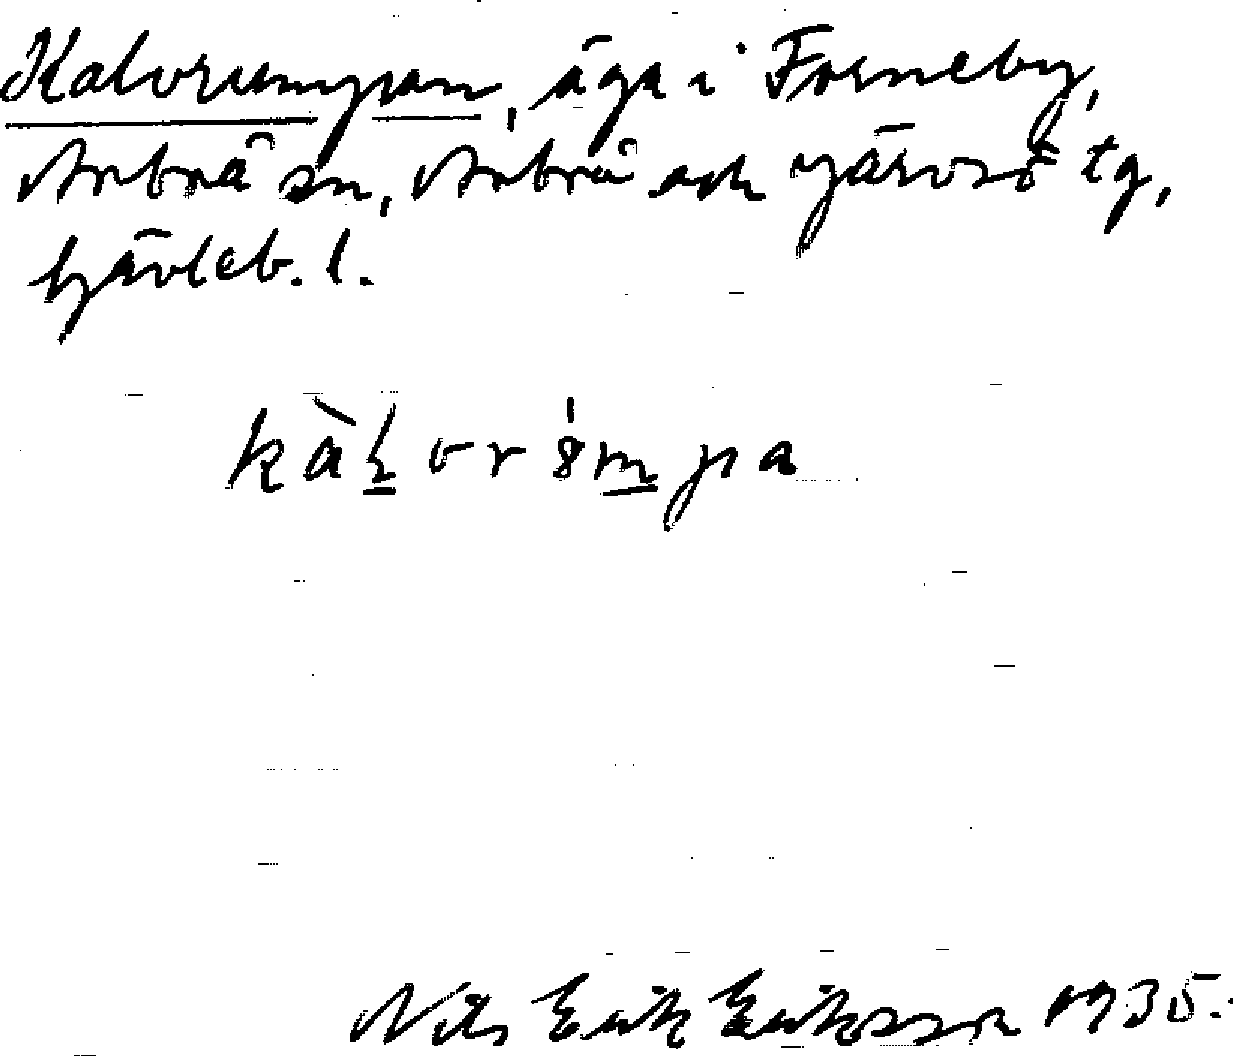 Kalvrumpan, äga i Forneby,
Arbrå sn, Arbrå och Järvsö tg,
Gävleb. l.
kàꞎvrømpa
Nils Erik Eriksson 1935.